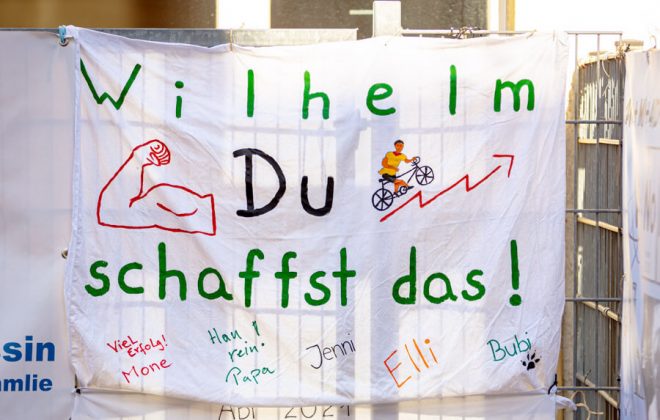 Wilhelm
Du
schaffst das!
Viel
Erfolg!
Mone
Hau
rein!
Papa
Jenni
Elli
Bubi
ssin
amlie
ABI 2021